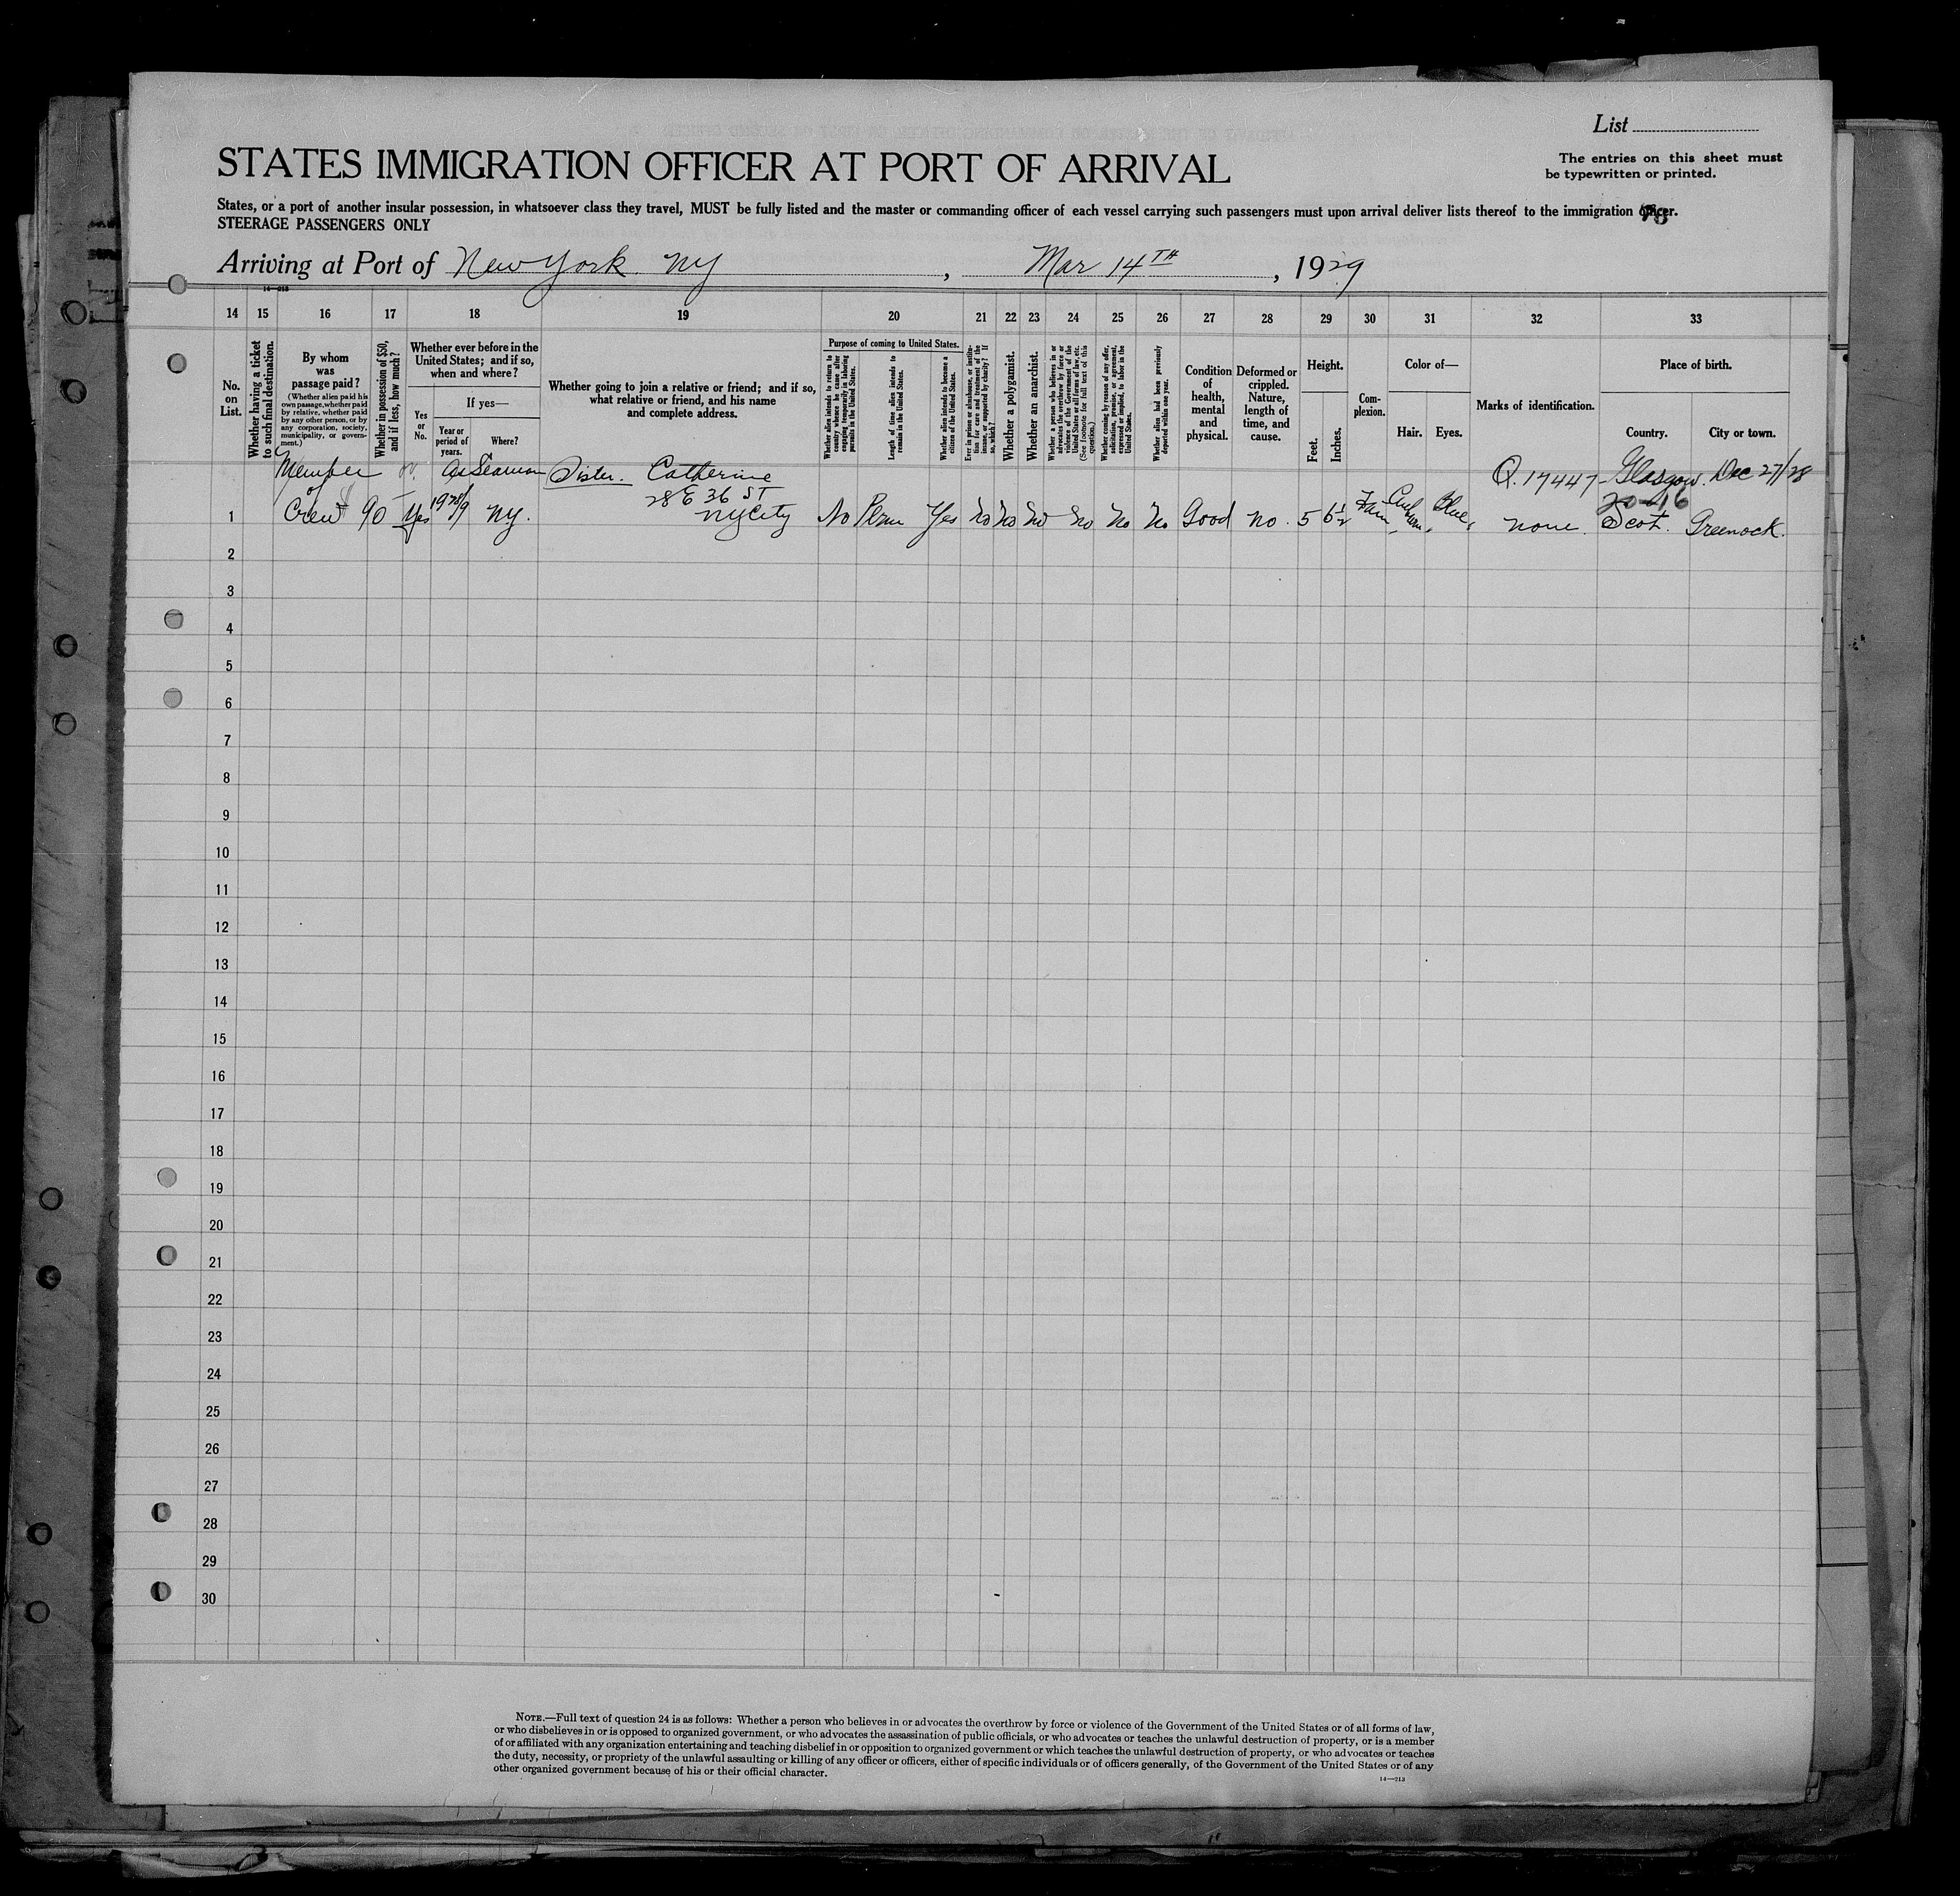 List
STATES IMMIGRATION OFFICER AT PORT OF ARRIVAL
The entries on this sheet must
be typewritten or printed.
States, or a port of another insular possession, in whatsoever class they travel, MUST be fully listed and the master or commanding officer of each vessel carrying such passengers must upon arrival deliver lists thereof to the immigration officer.
STEERAGE PASSENGERS ONLY
Arriving at Port of New York NY, Mar 14TH, 1929
14 15 16 17 18 19 20 21 22 23 24 25 26 27 28 29 30 31 32 33
No. on List.
Whether having a ticket to such final destination.
By whom was passage paid?
(Whether alien paid his own passage, whether paid by relative, whether paid by any other person, or by any corporation, society, municipality, or government.)
Whether in possession of $50, and if less, how much?
Whether ever before in the United States; and if so, when and where?
Yes or No.
If yes—
Year or period of years.
Where?
Whether going to join a relative or friend; and if so, what relative or friend, and his name and complete address.
Purpose of coming to United States.
Whether alien intends to return to country whence he came after engaging temporarily in laboring pursuits in the United States.
Length of time alien intends to remain in the United States.
Whether alien intends to become a citizen of the United States.
Ever in prison or almshouse, or institution for care and treatment of the insane, or supported by charity? If so, which?
Whether a polygamist.
Whether an anarchist.
Whether a person who believes in or advocates the overthrow by force or violence of the Government of the United States or all forms of law, etc. (See footnote for full text of this question.)
Whether coming by reason of any offer, solicitation, promise, or agreement, expressed or implied, to labor in the United States.
Whether alien had been previously deported within one year.
Condition of health, mental and physical.
Deformed or crippled. Nature, length of time, and cause.
Height.
Feet.
Inches.
Complexion.
Color of—
Hair.
Eyes.
Marks of identification.
Place of birth.
Country.
City or town.
Member as Seaman Sister. Catherine Q. 17447 - Glasgow. Dec 27/28
of 28 E 36 ST 20-46
1 Crew 90 Yes 1928/9 NY. NY City No Perm Yes No No No No No No Good no. 5 6½ Blue none. Scot. Greenock.
2
3
4
5
6
7
8
9
10
11
12
13
14
15
16
17
18
19
20
21
22
23
24
25
26
27
28
29
30
NOTE.—Full text of question 24 is as follows: Whether a person who believes in or advocates the overthrow by force or violence of the Government of the United States or of all forms of law,
or who disbelieves in or is opposed to organized government, or who advocates the assassination of public officials, or who advocates or teaches the unlawful destruction of property, or is a member
of or affiliated with any organization entertaining and teaching disbelief in or opposition to organized government or which teaches the unlawful destruction of property, or who advocates or teaches
the duty, necessity, or propriety of the unlawful assaulting or killing of any officer or officers, either of specific individuals or of officers generally, of the Government of the United States or of any
other organized government because of his or their official character.
14—213